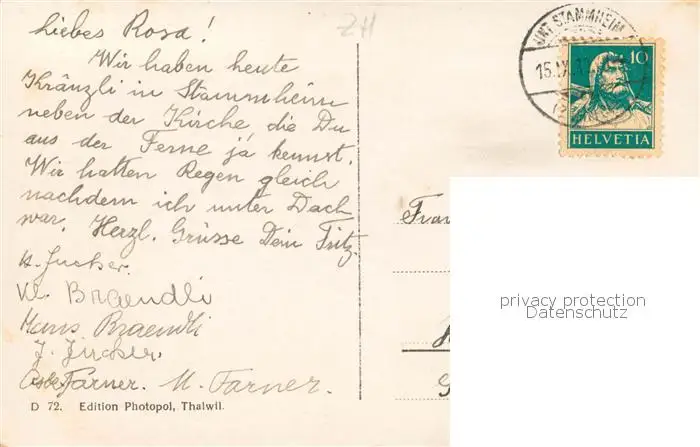 Liebes Rosa!
Wir haben heute
Kränzli in Stammheim
neben der Kirche die Du
aus der Ferne ja kennst.
Wir hatten Regen gleich
nachdem ich unter Dach
war. Herzl. Grüsse Dein Fritz
W. Braendli
Hans Braendli
Farner. M. Farner.
D 72. Edition Photopol, Thalwil.
ZH
UNT. STAMMHEIM
15.
10
HELVETIA
Frau
privacy protection
Datenschutz